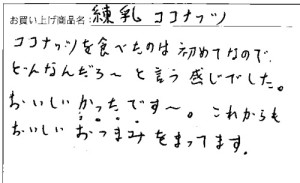 お買い上げ商品名：練乳ココナッツ
ココナッツを食べたのは初めてなので、
どんなんだろ〜と言う感じでした。
おいしいかったです〜。これからも
おいしいおつまみをまってます。